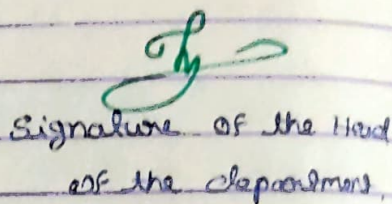 Signature of the Head
of the department.